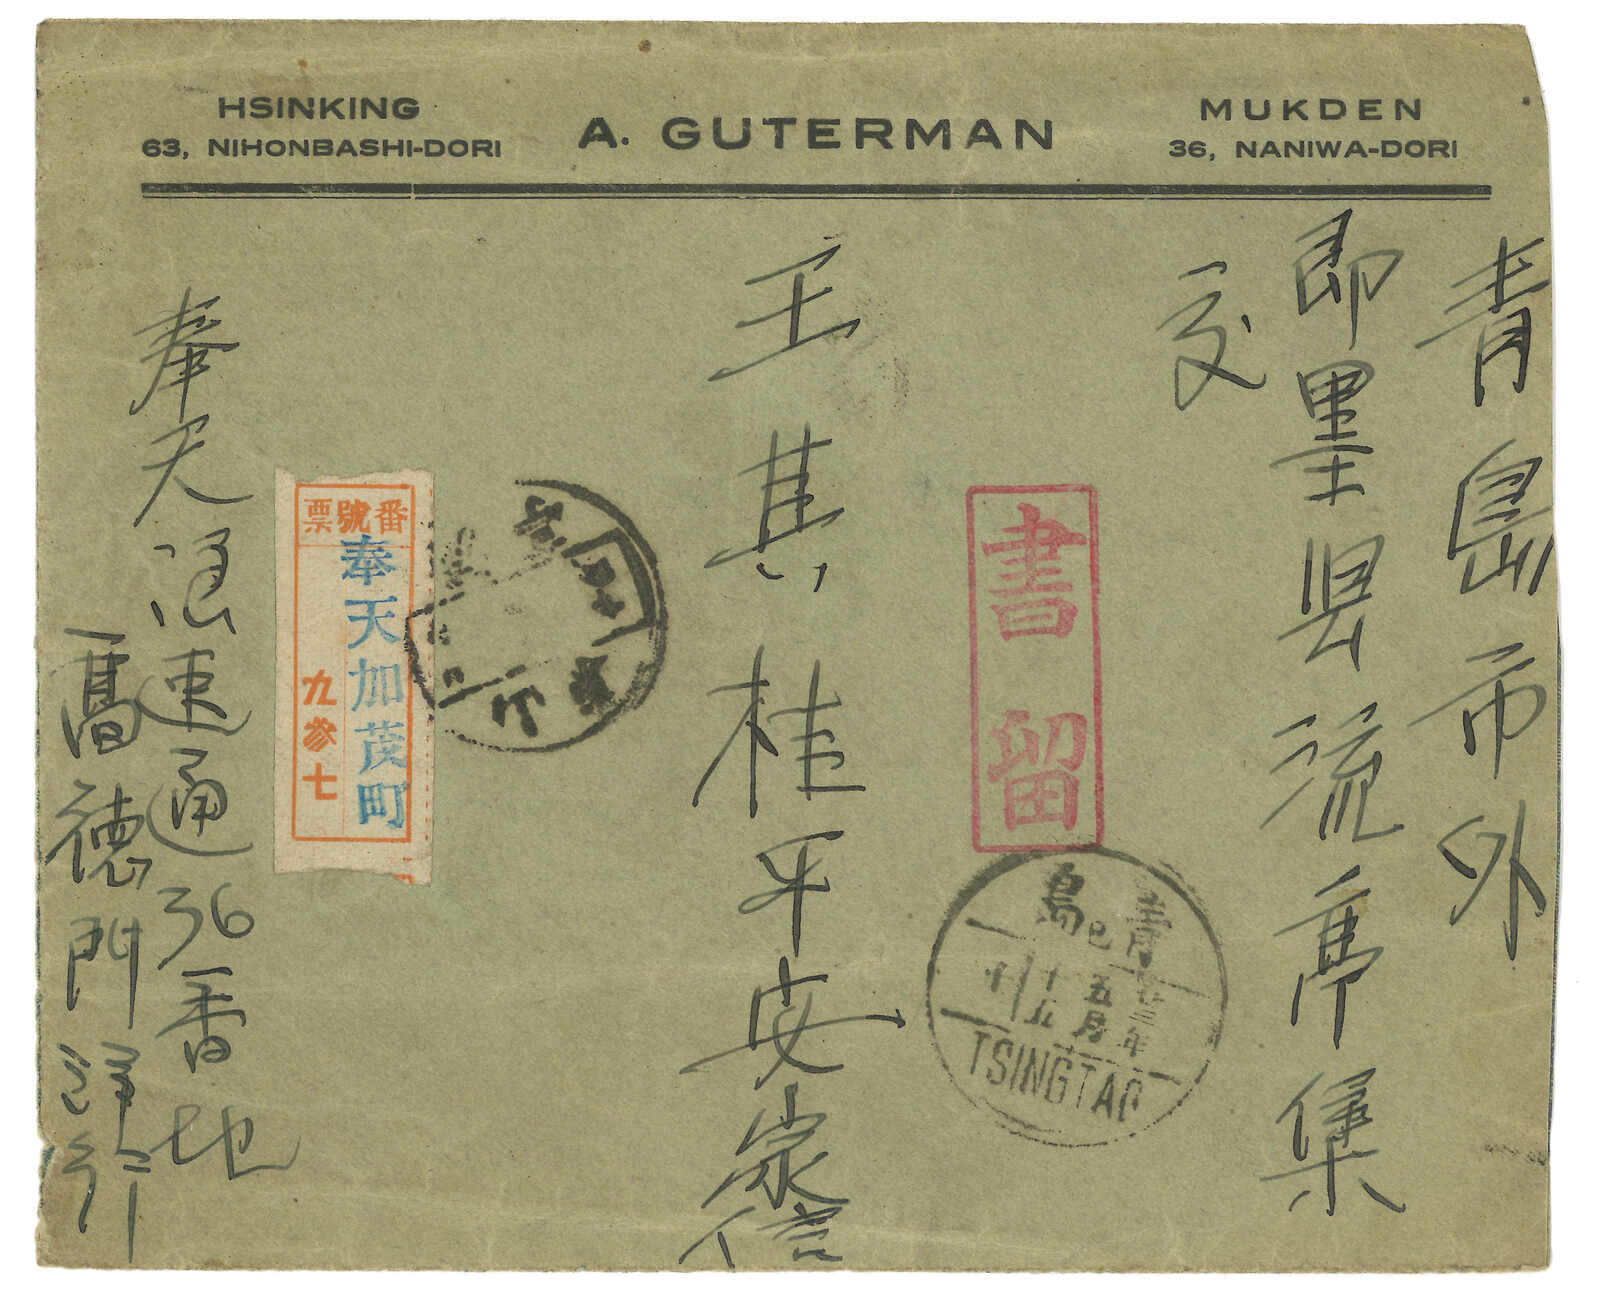 HSINKING
63, NIHONBASHI-DORI
A. GUTERMAN
MUKDEN
36, NANIWA-DORI
青島市外
即墨县流亭集
交
王其桂平安家信
奉天浪速通36番地
高德門洋行
票號番
奉天加茂町
九参七
書留
島青
巳
廿三年
五月
十五
TSINGTAO